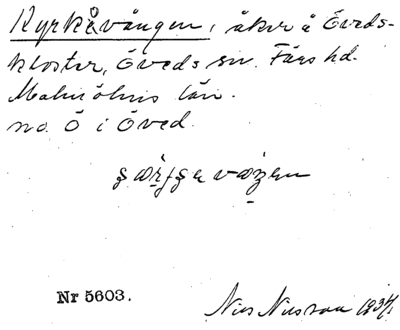 Kyrkåvången, åker å Öveds-
kloster, Öveds sn. Färs hd.
Malmöhus län.
no. Ö i Öved.
Nr 5603.
Nils Nilsson 1937